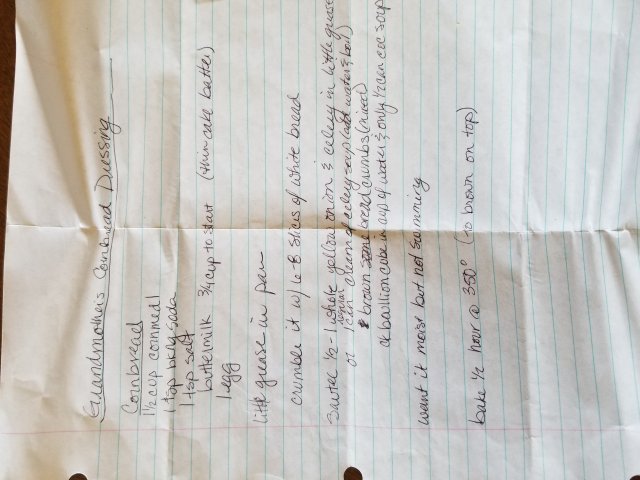 Grandmother's Cornbread Dressing
Cornbread
1 1/2 cup cornmeal
1 tsp bkg soda
1 tsp salt
buttermilk 3/4 cup to start (thin cake batter)
1 egg
little grease in pan
crumble it w/ 6-8 slices of white bread
sautee 1/2 - 1 whole yellow onion & celery in little grease
or 1 can cream of celery soup (add water & boil)
brown bread crumbs (mixed)
or boullion cube in cup of water & only 1/2 can coc soup
want it moist but not swimming
bake 1/2 hour @ 350° (so brown on top)